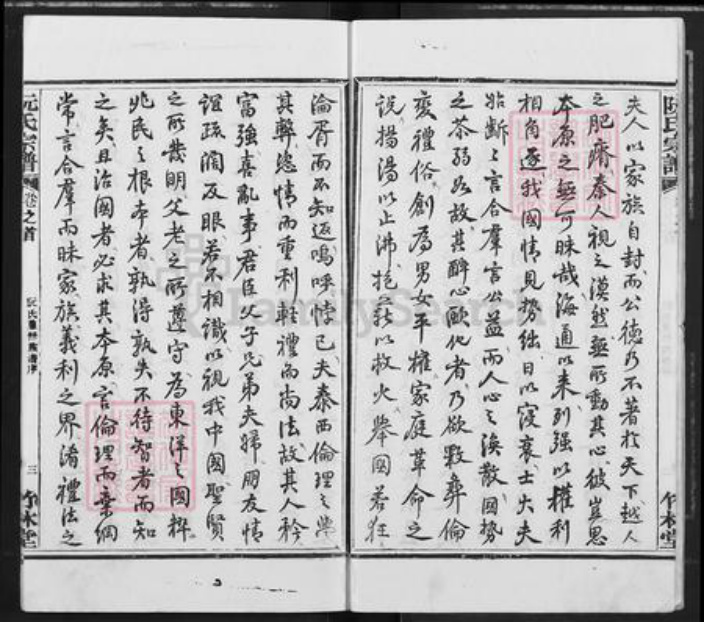 阮氏宗譜
夫人以家族自封而公德乃不著於天下越人
之肥瘠秦人視之漠然無所動其心彼豈思
本原之無可昧哉海通以來列強以權利
相角逐我國情見勢絀日以寖衰士大夫
始斷斷言合羣言公益而人心之渙散國勢
之苶弱如故其醉心歐化者乃欲斁彝倫
變禮俗創為男女平權家庭革命之
說揚湯以止沸抱薪以救火舉國若狂
竹林堂
淪胥而不知返嗚呼悖已夫泰西倫理之學
其弊恣情而重利輕禮而尚法故其人矜
富強喜亂事君臣父子兄弟夫婦朋友情
誼疏濶反眼若不相識以視我中國聖賢
之所幾明父老之所遵守為東洋之國粹
兆民之根本者孰得孰失不待智者而知
之矣且治國者必求其本原言倫理而棄綱
常言合羣而昧家族義利之界淆禮法之
阮氏宗譜
卷之首
三
竹林堂
FamilySearch